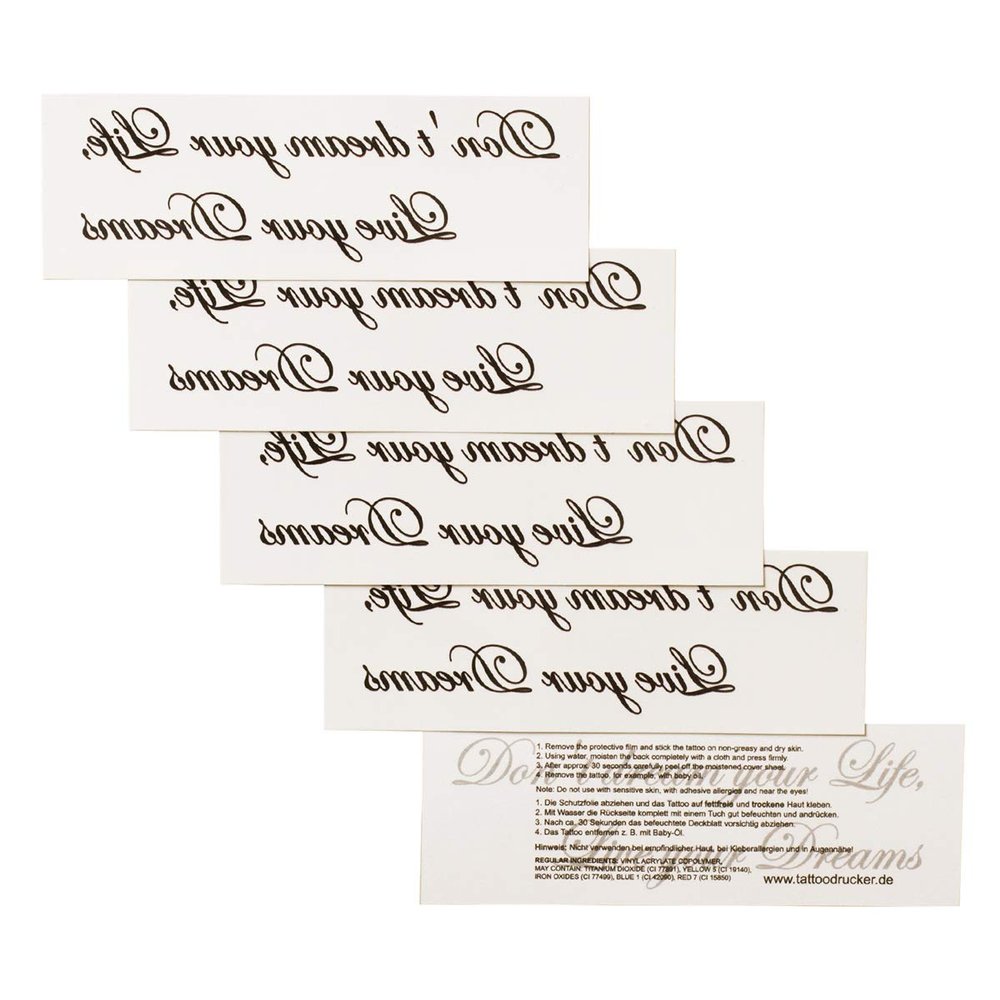 Don't dream your Life,
Live your Dreams
Don't dream your Life,
Live your Dreams
Don't dream your Life,
Live your Dreams
Don't dream your Life,
Live your Dreams
Don't dream your Life,
Live your Dreams
1. Remove the protective film and stick the tattoo on non-greasy and dry skin.
2. Using water, moisten the back completely with a cloth and press firmly.
3. After approx. 30 seconds carefully peel off the moistened cover sheet.
4. Remove the tattoo, for example, with baby oil.
Note: Do not use with sensitive skin, with adhesive allergies and near the eyes!
1. Die Schutzfolie abziehen und das Tattoo auf fettfreie und trockene Haut kleben.
2. Mit Wasser die Rückseite komplett mit einem Tuch gut befeuchten und andrücken.
3. Nach ca. 30 Sekunden das befeuchtete Deckblatt vorsichtig abziehen.
4. Das Tattoo entfernen z. B. mit Baby-Öl.
Hinweis: Nicht verwenden bei empfindlicher Haut, bei Kleberallergien und in Augennähe!
REGULAR INGREDIENTS: VINYL ACRYLATE COPOLYMER,
MAY CONTAIN: TITANIUM DIOXIDE (CI 77891), YELLOW 5 (CI 19140),
IRON OXIDES (CI 77499), BLUE 1 (CI 42090), RED 7 (CI 15850)
www.tattoodrucker.de